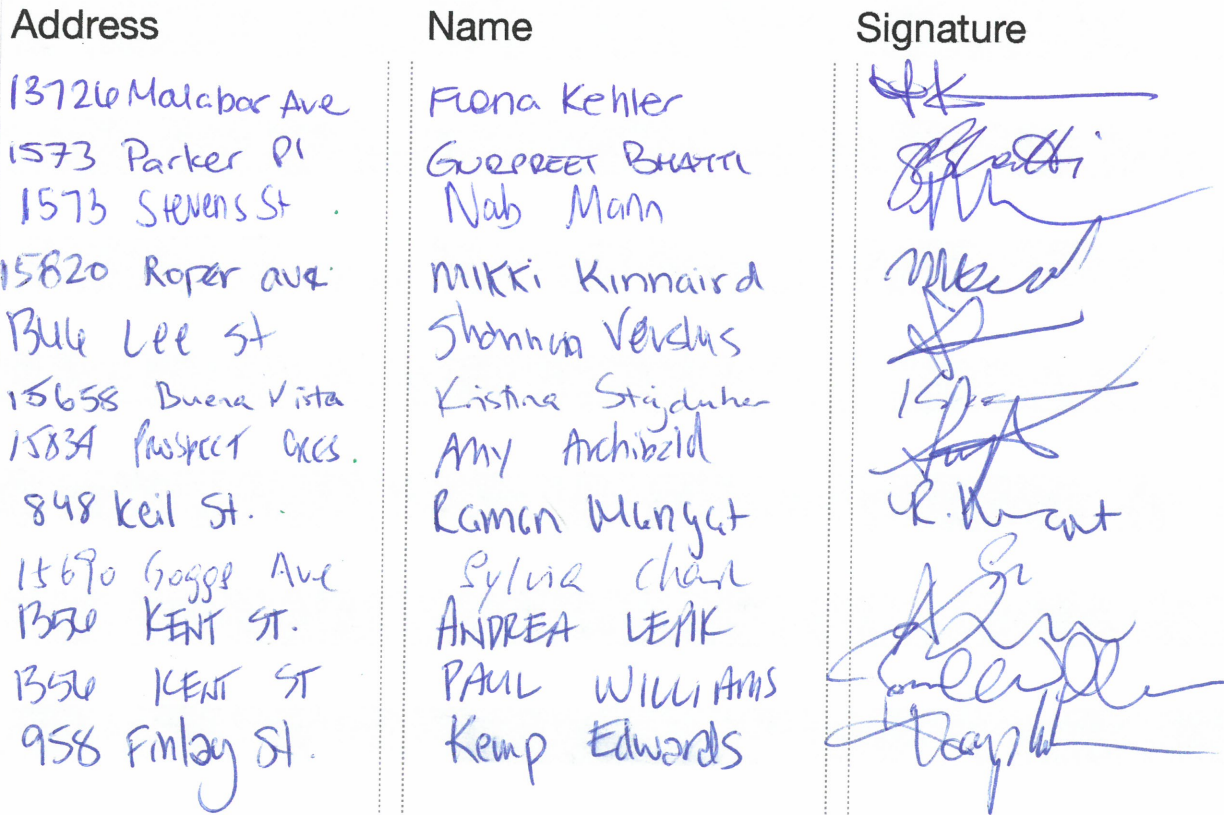 Address Name Signature
13726 Malabar Ave Fiona Kehler
1573 Parker Pl GURPREET BHATTI
1573 Stevens St Nab Mann
15820 Roper ave MIKKi Kinnaird
Lee St Shannon
15658 Buena Vista Kristina Stajduhar
15834 PROSPECT CRES. AMY Archibald
848 Keil St. Raman Mangat R. Mangat
15690 Goggs Ave Sylvia Chan
1356 KENT ST. ANDREA LEPIK
1356 KENT ST PAUL WILLIAMS
958 Finlay St. Kemp Edwards